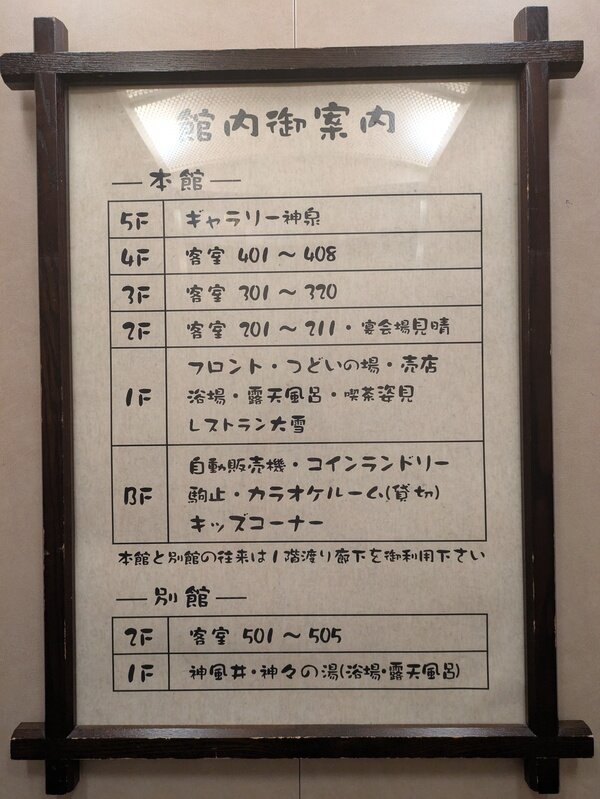 館内御案内
― 本館 ―
5F ギャラリー神泉
4F 客室 401 ～ 408
3F 客室 301 ～ 320
2F 客室 201 ～ 211・宴会場見晴
1F フロント・つどいの場・売店
浴場・露天風呂・喫茶姿見
レストラン大雪
BF 自動販売機・コインランドリー
駒止・カラオケルーム(貸切)
キッズコーナー
本館と別館の往来は1階渡り廊下を御利用下さい
― 別館 ―
2F 客室 501 ～ 505
1F 神風井・神々の湯(浴場・露天風呂)